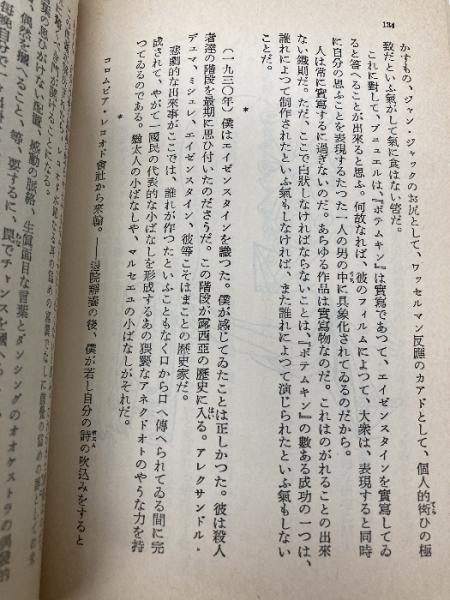 134
かすもの、ジャン・ジャックのお尻として、ワッセルマン反應のカアドとして、個人的衒ひの極
致だといふ氣がして氣に食はない筈だ。
これに對して、ブニュエルは、『ポテムキン』は實寫であつて、エイゼンスタインを實寫してゐ
ると答へることが出來ると思ふ。何故なれば、彼のフィルムによつて、大衆は、表現すると同時
に自分の思ふことを表現するたつた一人の男の中に具象化されてゐるのだから。
人は常に實寫するに過ぎないのだ。あらゆる作品は實寫物なのだ。これはのがれることの出來
ない鐵則だ。ただ、ここで白狀しなければならないことは、『ポテムキン』の數ある成功の一つは、
誰れによつて制作されたといふ氣もしなければ、また誰れによつて演じられたといふ氣もしない
ことだ。
*
(一九三〇年) 僕はエイゼンスタインを識つた。僕が感じてゐたことは正しかつた。彼は殺人
者達の階段を最期に思ひ付いたのださうだ。この階段が露西亞の歷史に入る。アレクサンドル・
デュマ、ミシュレ、エイゼンスタイン、彼等こそはまことの歷史家だ。
悲劇的な出來事がここでは、誰れが作つたといふこともなく口から口へ傳へられてゐる間に完
成されて、やがて一國民の代表的な小ばなしを形成するあの猥褻なアネクドオトのやうな力を持
つてゐるのである。猶太人の小ばなしや、マルセエユの小ばなしがそれだ。
*
コロムビア・レコオド會社から來翰。――
の後、僕が若し自分の詩の吹込みをすると